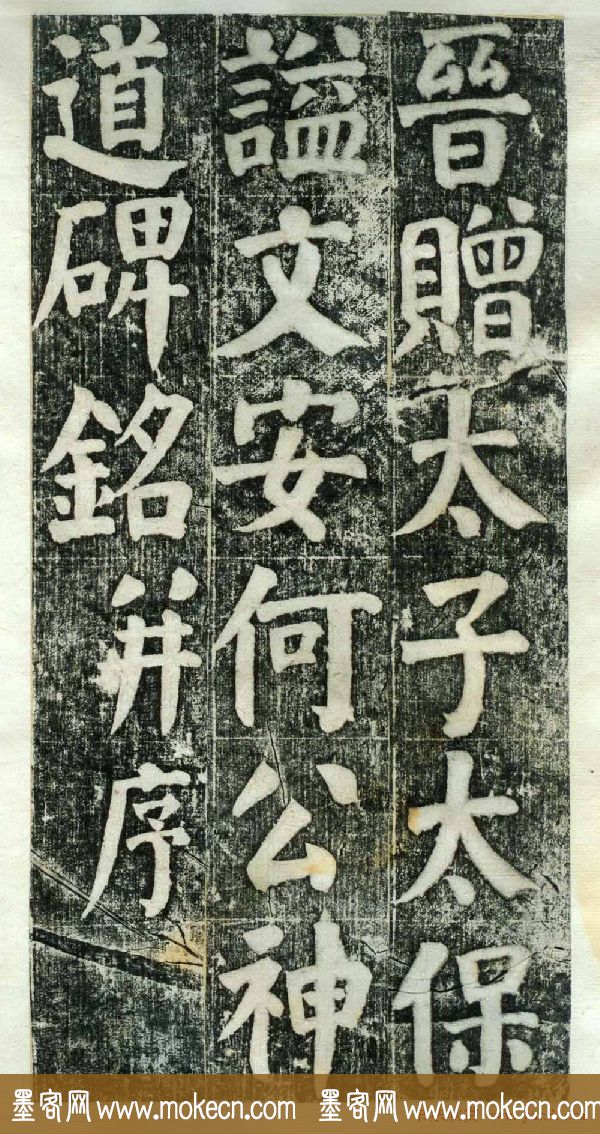 晉贈太子太保
謚文安何公神
道碑銘并序
墨客网 www.mokecn.com 墨客网 www.mokecn.com